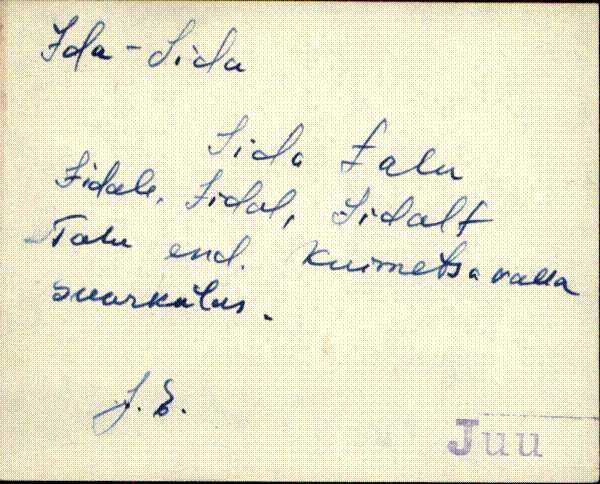 Ida - Sida
Sida talu
Sidale, Sidal, Sidalt
Talu end. Kuimetsa valla
Suurkülas.
J. E.
Juu